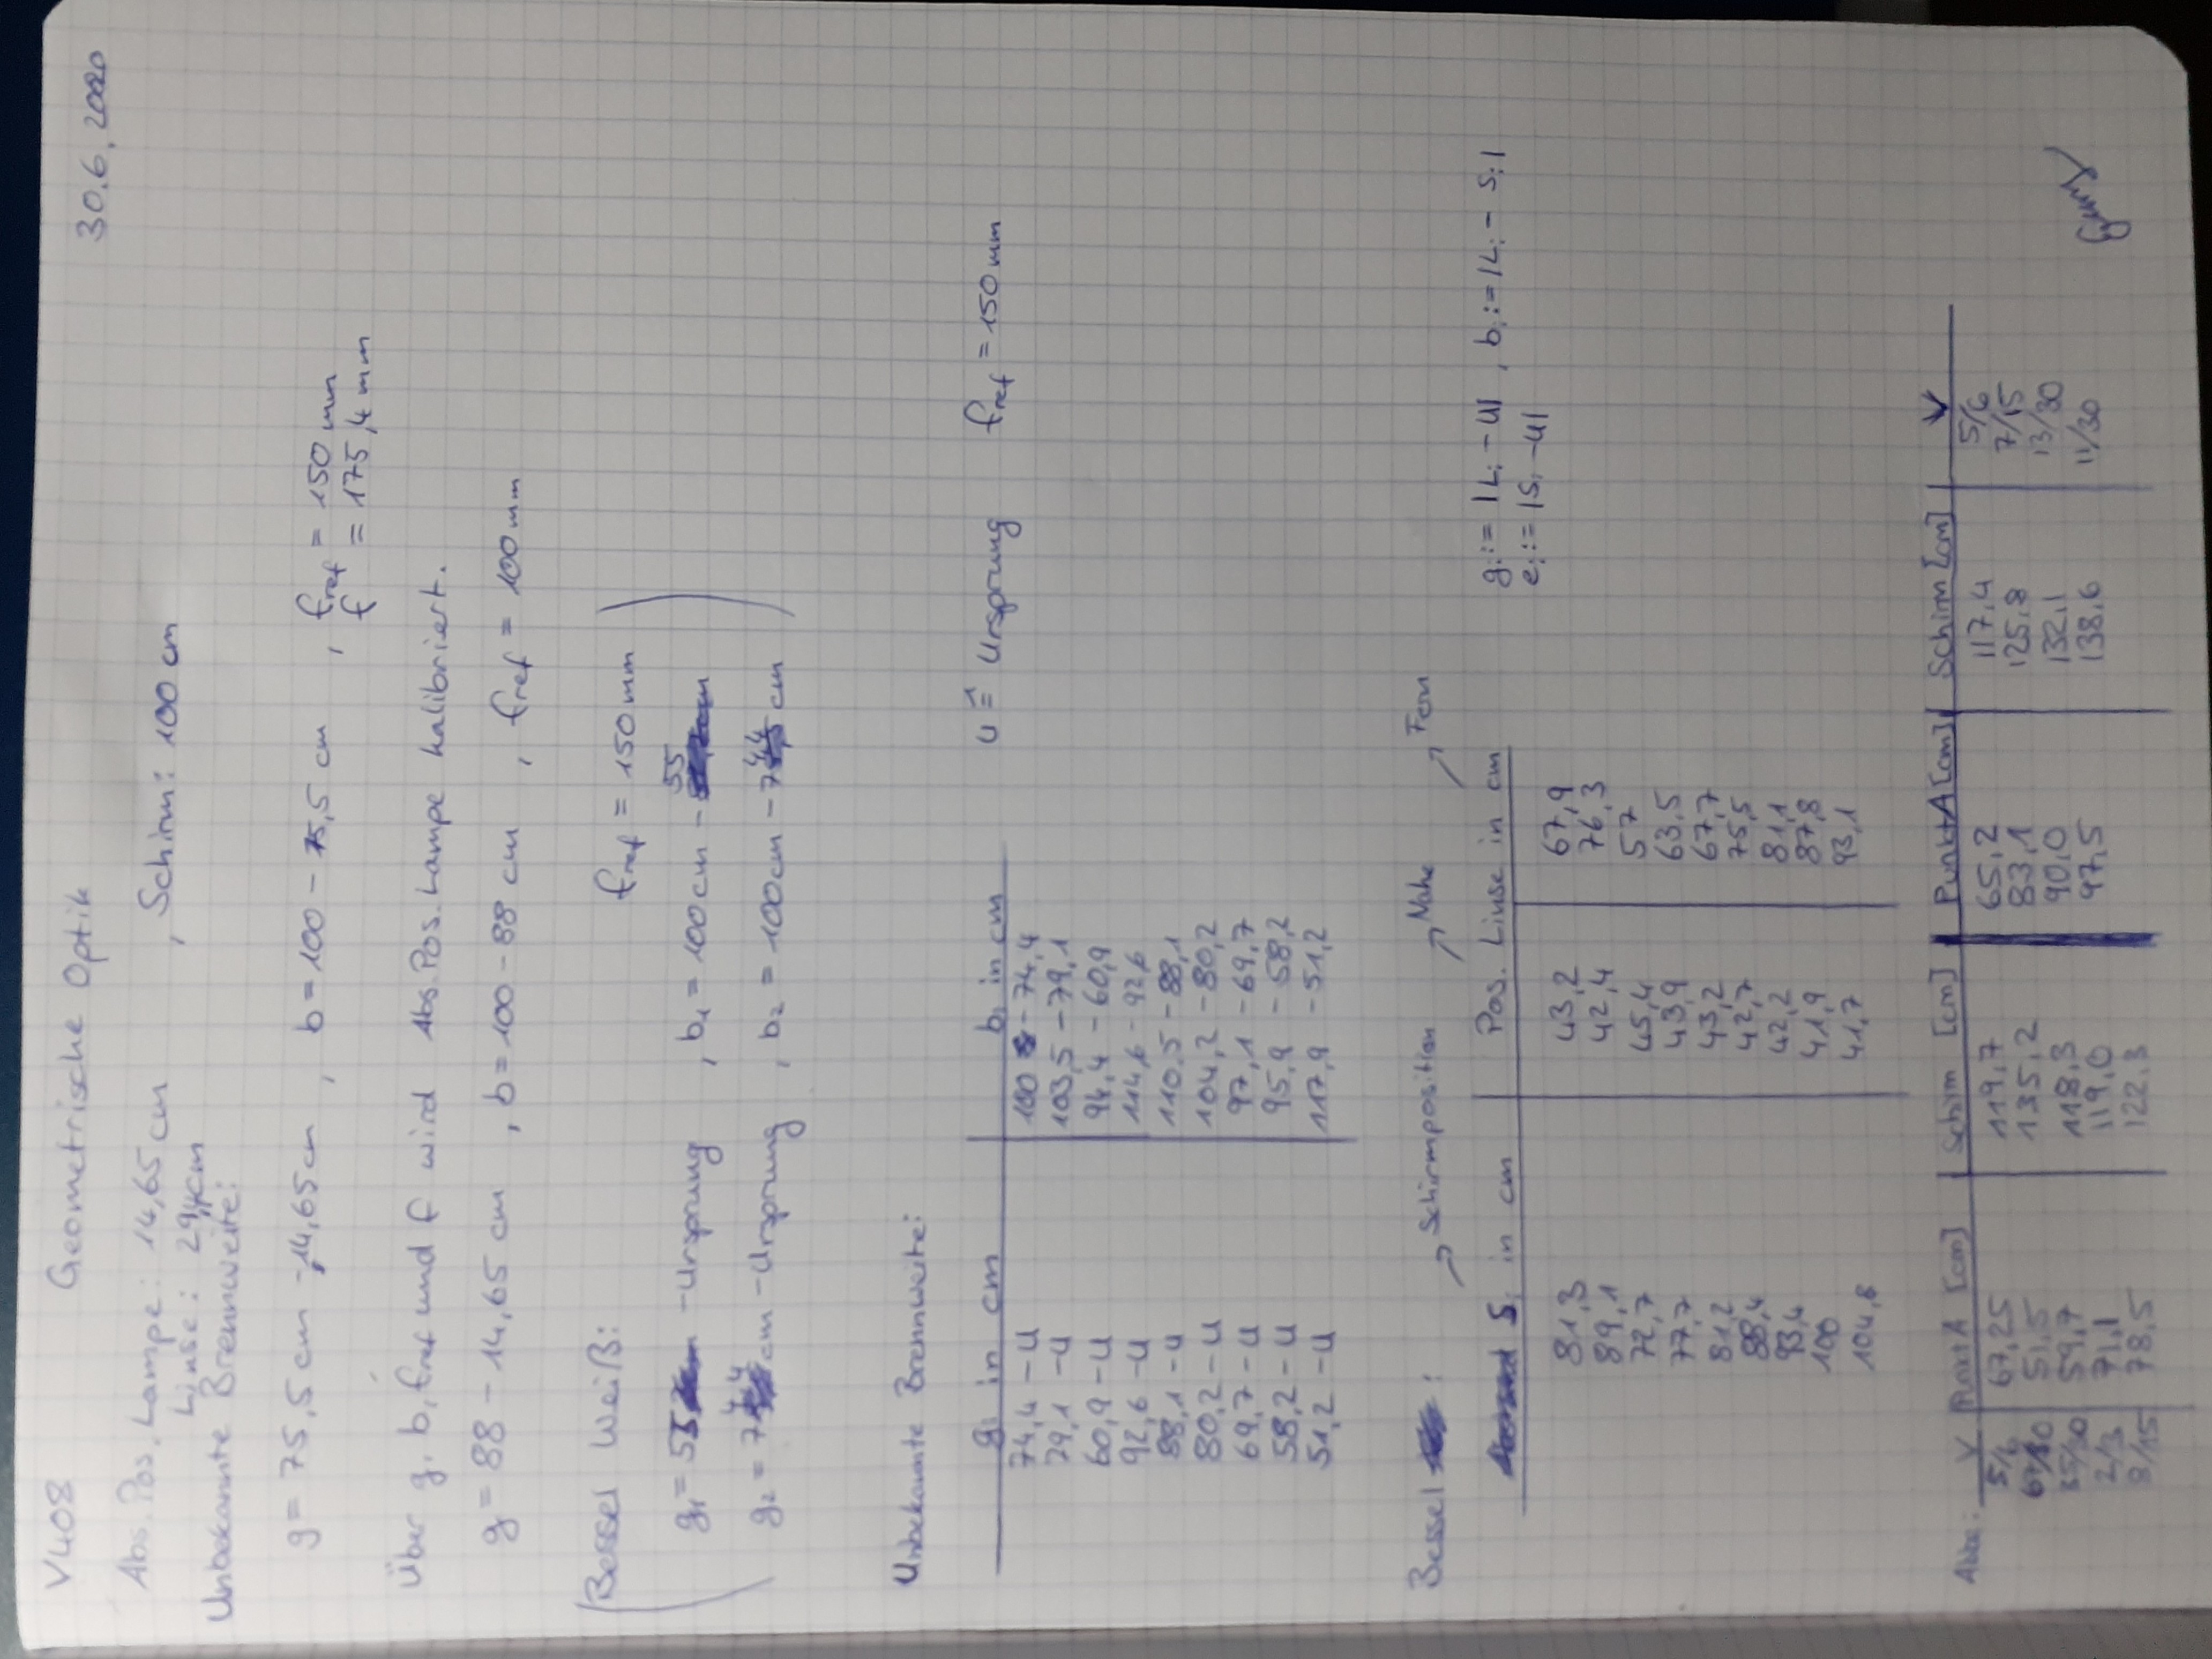 V408 Geometrische Optik 30.6.2020
Abs. Pos. Lampe: 14,65 cm , Schirm: 100 cm
Linse: 29,4cm
Unbekannte Brennweite:
g = 75,5 cm - 14,65 cm , b = 100 - 75,5 cm , fref = 150 mm
f = 175,4 mm
Über g, b, fref und f wird Abs. Pos. Lampe kalibriert.
g = 88 - 14,65 cm , b = 100 - 88 cm , fref = 100 mm
Bessel Weiß: fref = 150 mm
g1 = 55 - Ursprung , b1 = 100 cm - 55
g2 = 74,4 cm - Ursprung , b2 = 100 cm - 74,4 cm
Unbekannte Brennweite:
gi in cm bi in cm U ≙ Ursprung fref = 150 mm
74,4 - U 100 - 74,4
79,1 - U 103,5 - 79,1
60,9 - U 94,4 - 60,9
92,6 - U 114,6 - 92,6
88,1 - U 110,5 - 88,1
80,2 - U 104,2 - 80,2
69,7 - U 97,1 - 69,7
58,2 - U 95,9 - 58,2
51,2 - U 117,9 - 51,2
Bessel : Schirmposition Nahe Fern
Si in cm Pos. Linse in cm gi := |Li - U| , bi := |Li - Si|
ei := |Si - U|
81,3 43,2 67,9
89,1 42,4 76,3
72,7 45,4 57
77,7 43,9 63,5
81,2 43,2 67,7
88,4 42,7 75,5
93,4 42,2 81,1
100 41,9 87,8
104,8 41,7 93,1
Abbe: V Punkt A [cm] Schirm [cm] Punkt A [cm] Schirm [cm] V
5/6 67,25 119,7 65,2 117,4 5/6
67/30 51,5 135,2 83,1 125,8 7/15
35/30 59,7 118,3 90,0 132,1 13/30
2/3 71,1 119,0 97,5 138,6 11/30
8/15 78,5 122,3